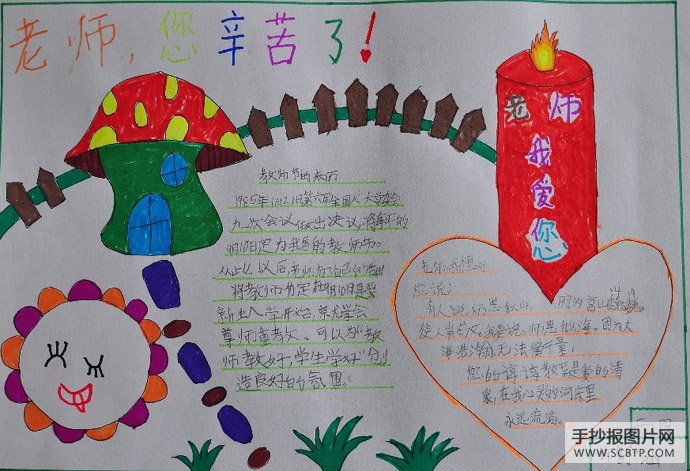 老师,您辛苦了!
老师
我
爱
您
教师节的来历
1985年1月21日第六届全国人大常委会
九次会议做出决议,将每年的
9月10日定为我国的教师节。
从此以后老师有了自己的节日
将教师节定在9月10日是
新生入学开始,
尊师重教 可以 教
师教好,学生学好 创
造良好的氛围。
老师,我想对
您说:
有人说,师恩似山, 因为高山
使人 我要说,师恩似海,因为大
海浩瀚 无法 量。
您的谆谆教导是爱的清
泉,在我心灵的河床里
永远流淌。
手抄报图片网
WWW.SCBTP.COM